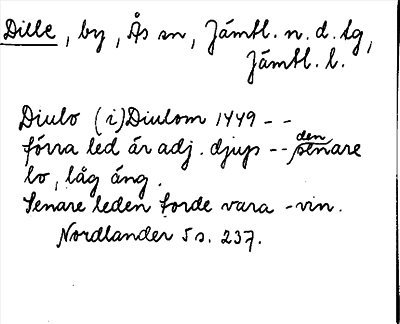 Dille, by, Ås sn, Jämtl. n. d. tg,
Jämtl. l.
Diulo (i) Diulom 1449 - -
förra led är adj. djup - - den senare
lo, låg äng.
Senare leden torde vara -vin.
Nordlander 5 s. 237.